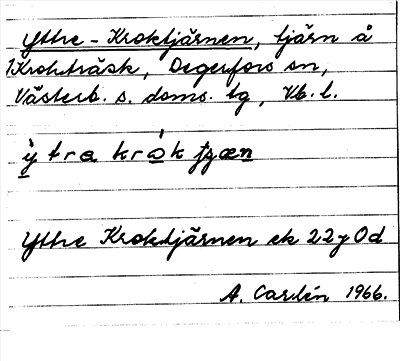 Yttre-Kroktjärnen, tjärn å
Krokträsk, Degerfors sn,
Västerb. s. doms. tg, Vb. l.
ỳtra krók tjæn
Yttre Kroktjärnen ek 22y Od
A. Carlén 1966.